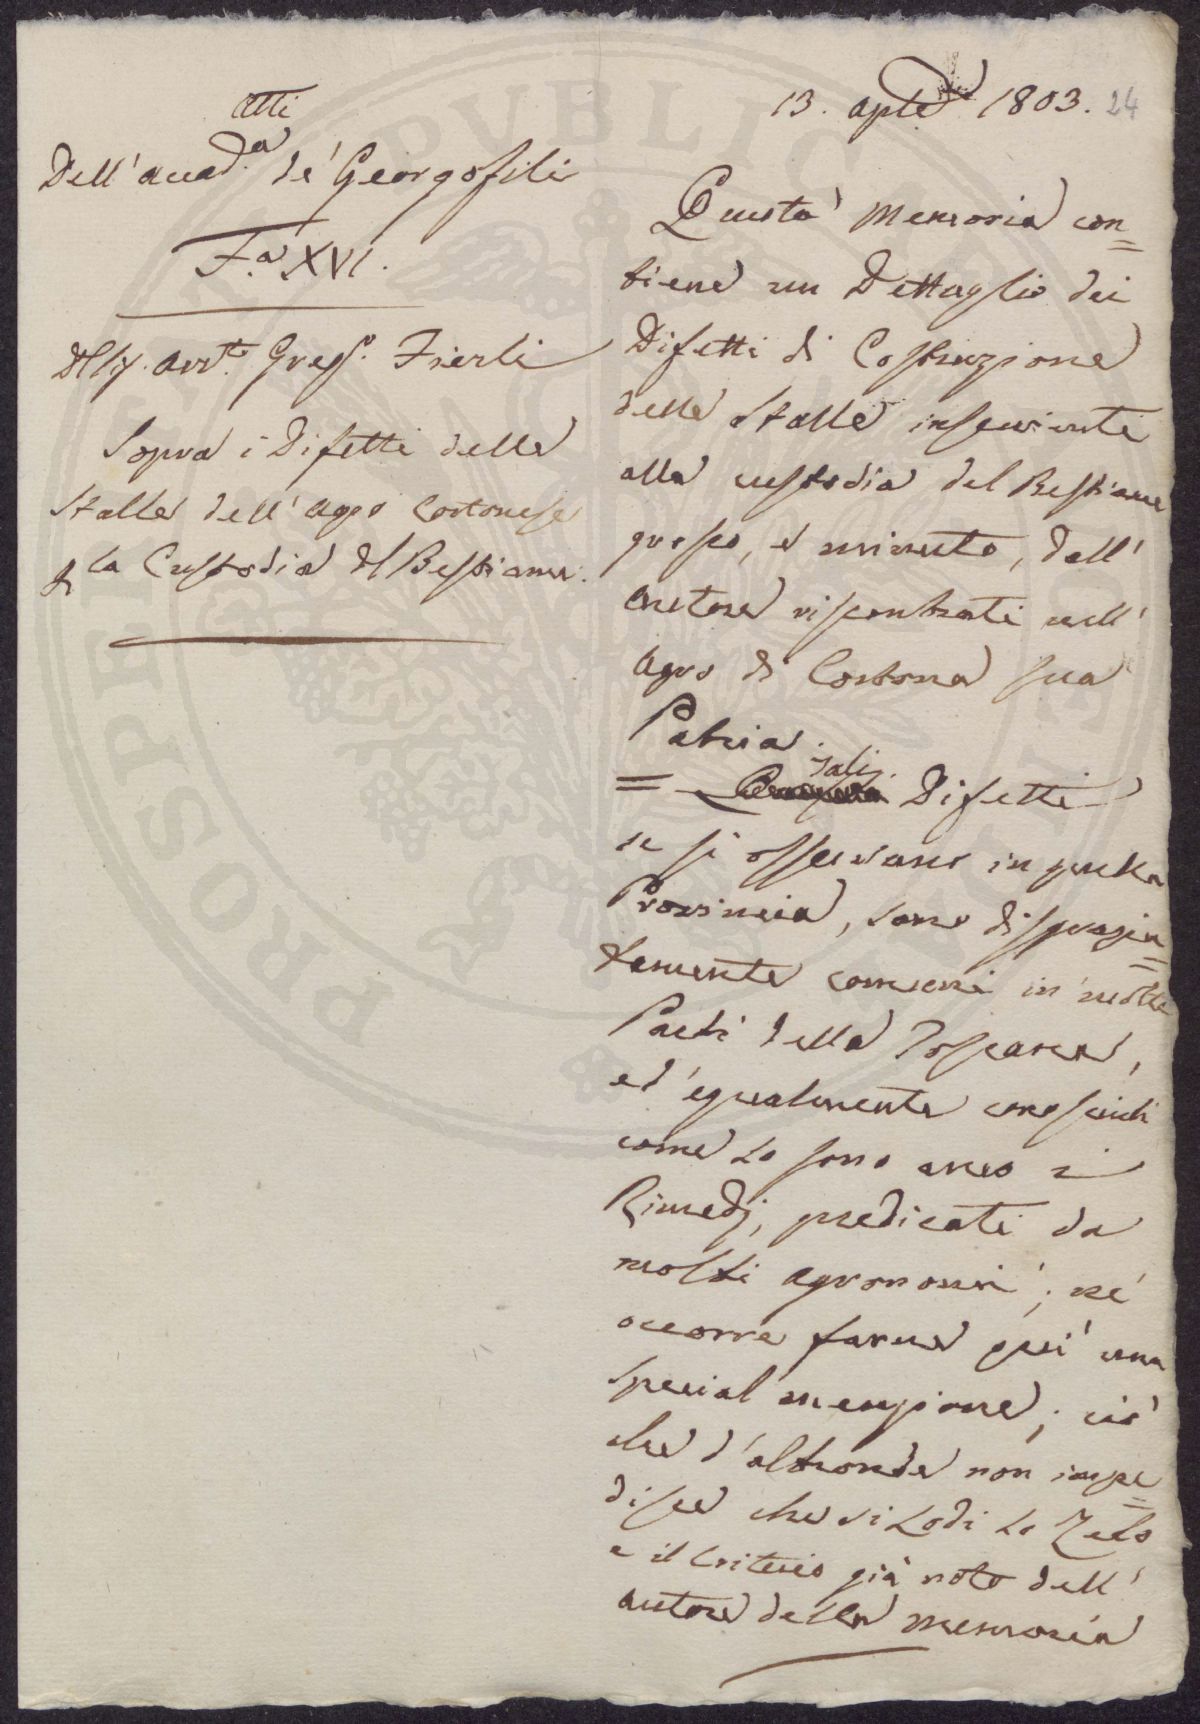 Atti
Dell'Accad.a de' Georgofili
F.a XVI.
Del Sig. Avv.to Greg.o Fierli
Sopra i Difetti delle
Stalle dell'Agro Cortonese
p la Custodia del Bestiame.
13. aple 1803. 24
Questa memoria con=
tiene un Dettaglio dei
Difetti di Costruzione
delle Stalle inservienti
alla custodia del Bestiame
grosso, e minuto, dall'
Autore riscontrati nell'
Agro di Cortona sua
Patria.
= Tali Difetti
se si osservano in quella
Provincia, sono disgrazia=
tamente comuni in molte
Parti della Toscana,
ed egualmente conosciuti
come lo sono anco i
Rimedj, predicati da
molti agronomi; né
occorre farne quì una
special menzione; ciò
che d'altronde non impe=
disce che si Lodi lo Zelo
e il Criterio già noto dell'
autore della memoria
PVBLIC
PROSPERITATI